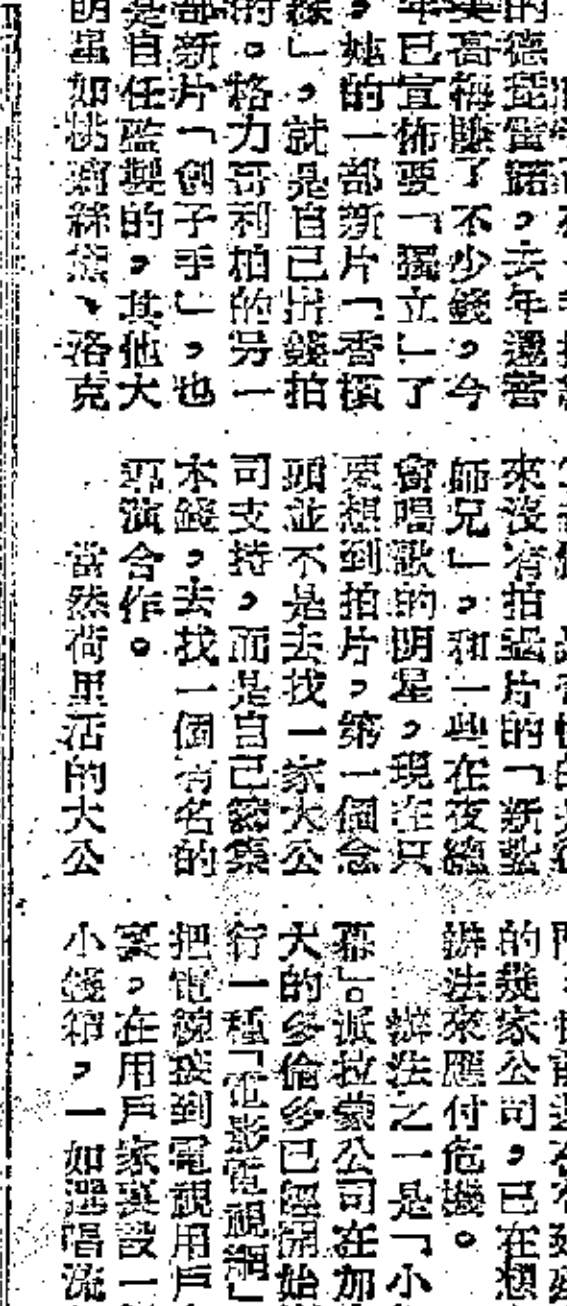 的德琵雷諾，去年還替
美高梅賺了不少錢，今
年已宣佈要「獨立」了
，她的一部新片「香檳
緣」，就是自己出錢拍
的。格力哥利柏的另一
部新片「劊子手」，也
是自任監製的，其他大
明星如桃麗絲黛、洛克
來沒有拍過片的「新紮
師兄」，和一些在夜總
會唱歌的明星，現在只
要想到拍片，第一個念
頭並不是去找一家大公
司支持，而是自己籌集
本錢，去找一個有名的
導演合作。
當然荷里活的大公
的幾家公司，已在想
辦法來應付危機。
辦法之一是「小
幕」。派拉蒙公司在加
大的多倫多已經開始
行一種「電影電視網」
把電線接到電視用戶
裏，在用戶家裏設一
小錢箱，一如選唱流